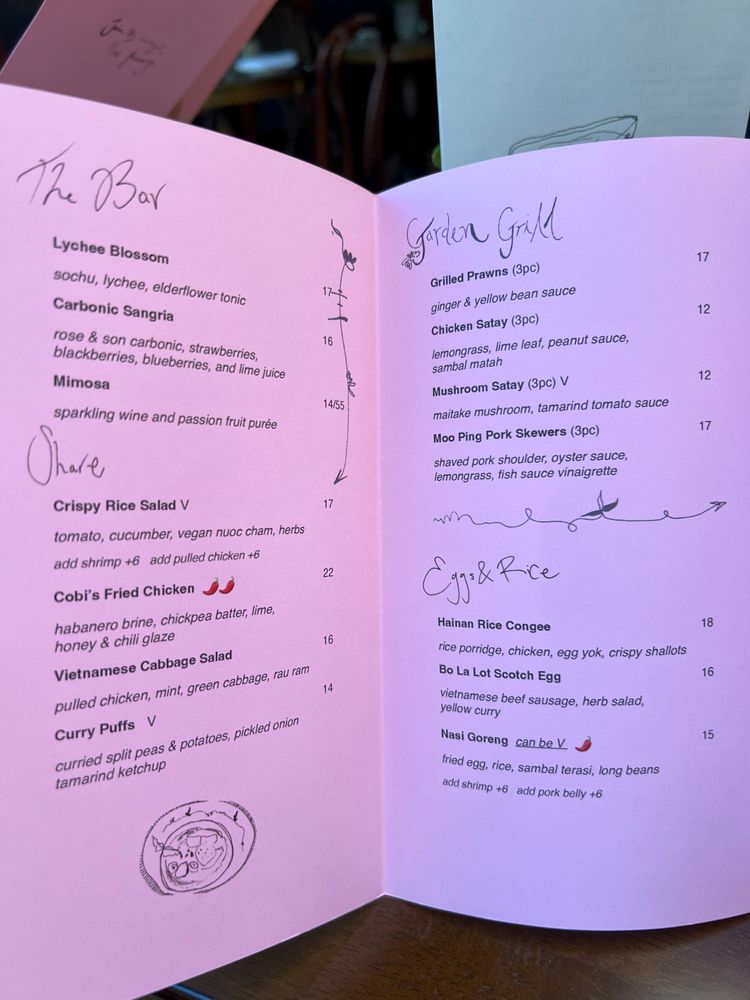 The Bar
Lychee Blossom
sochu, lychee, elderflower tonic 17
Carbonic Sangria
rose & son carbonic, strawberries, 16
blackberries, blueberries, and lime juice
Mimosa
sparkling wine and passion fruit purée 14/55
Share
Crispy Rice Salad V 17
tomato, cucumber, vegan nuoc cham, herbs
add shrimp +6 add pulled chicken +6
Cobi's Fried Chicken 🌶️🌶️ 22
habanero brine, chickpea batter, lime,
honey & chili glaze
Vietnamese Cabbage Salad 16
pulled chicken, mint, green cabbage, rau ram
Curry Puffs V 14
curried split peas & potatoes, pickled onion
tamarind ketchup
Garden Grill
Grilled Prawns (3pc) 17
ginger & yellow bean sauce
Chicken Satay (3pc) 12
lemongrass, lime leaf, peanut sauce,
sambal matah
Mushroom Satay (3pc) V 12
maitake mushroom, tamarind tomato sauce
Moo Ping Pork Skewers (3pc) 17
shaved pork shoulder, oyster sauce,
lemongrass, fish sauce vinaigrette
Eggs & Rice
Hainan Rice Congee 18
rice porridge, chicken, egg yok, crispy shallots
Bo La Lot Scotch Egg 16
vietnamese beef sausage, herb salad,
yellow curry
Nasi Goreng can be V 🌶️ 15
fried egg, rice, sambal terasi, long beans
add shrimp +6 add pork belly +6